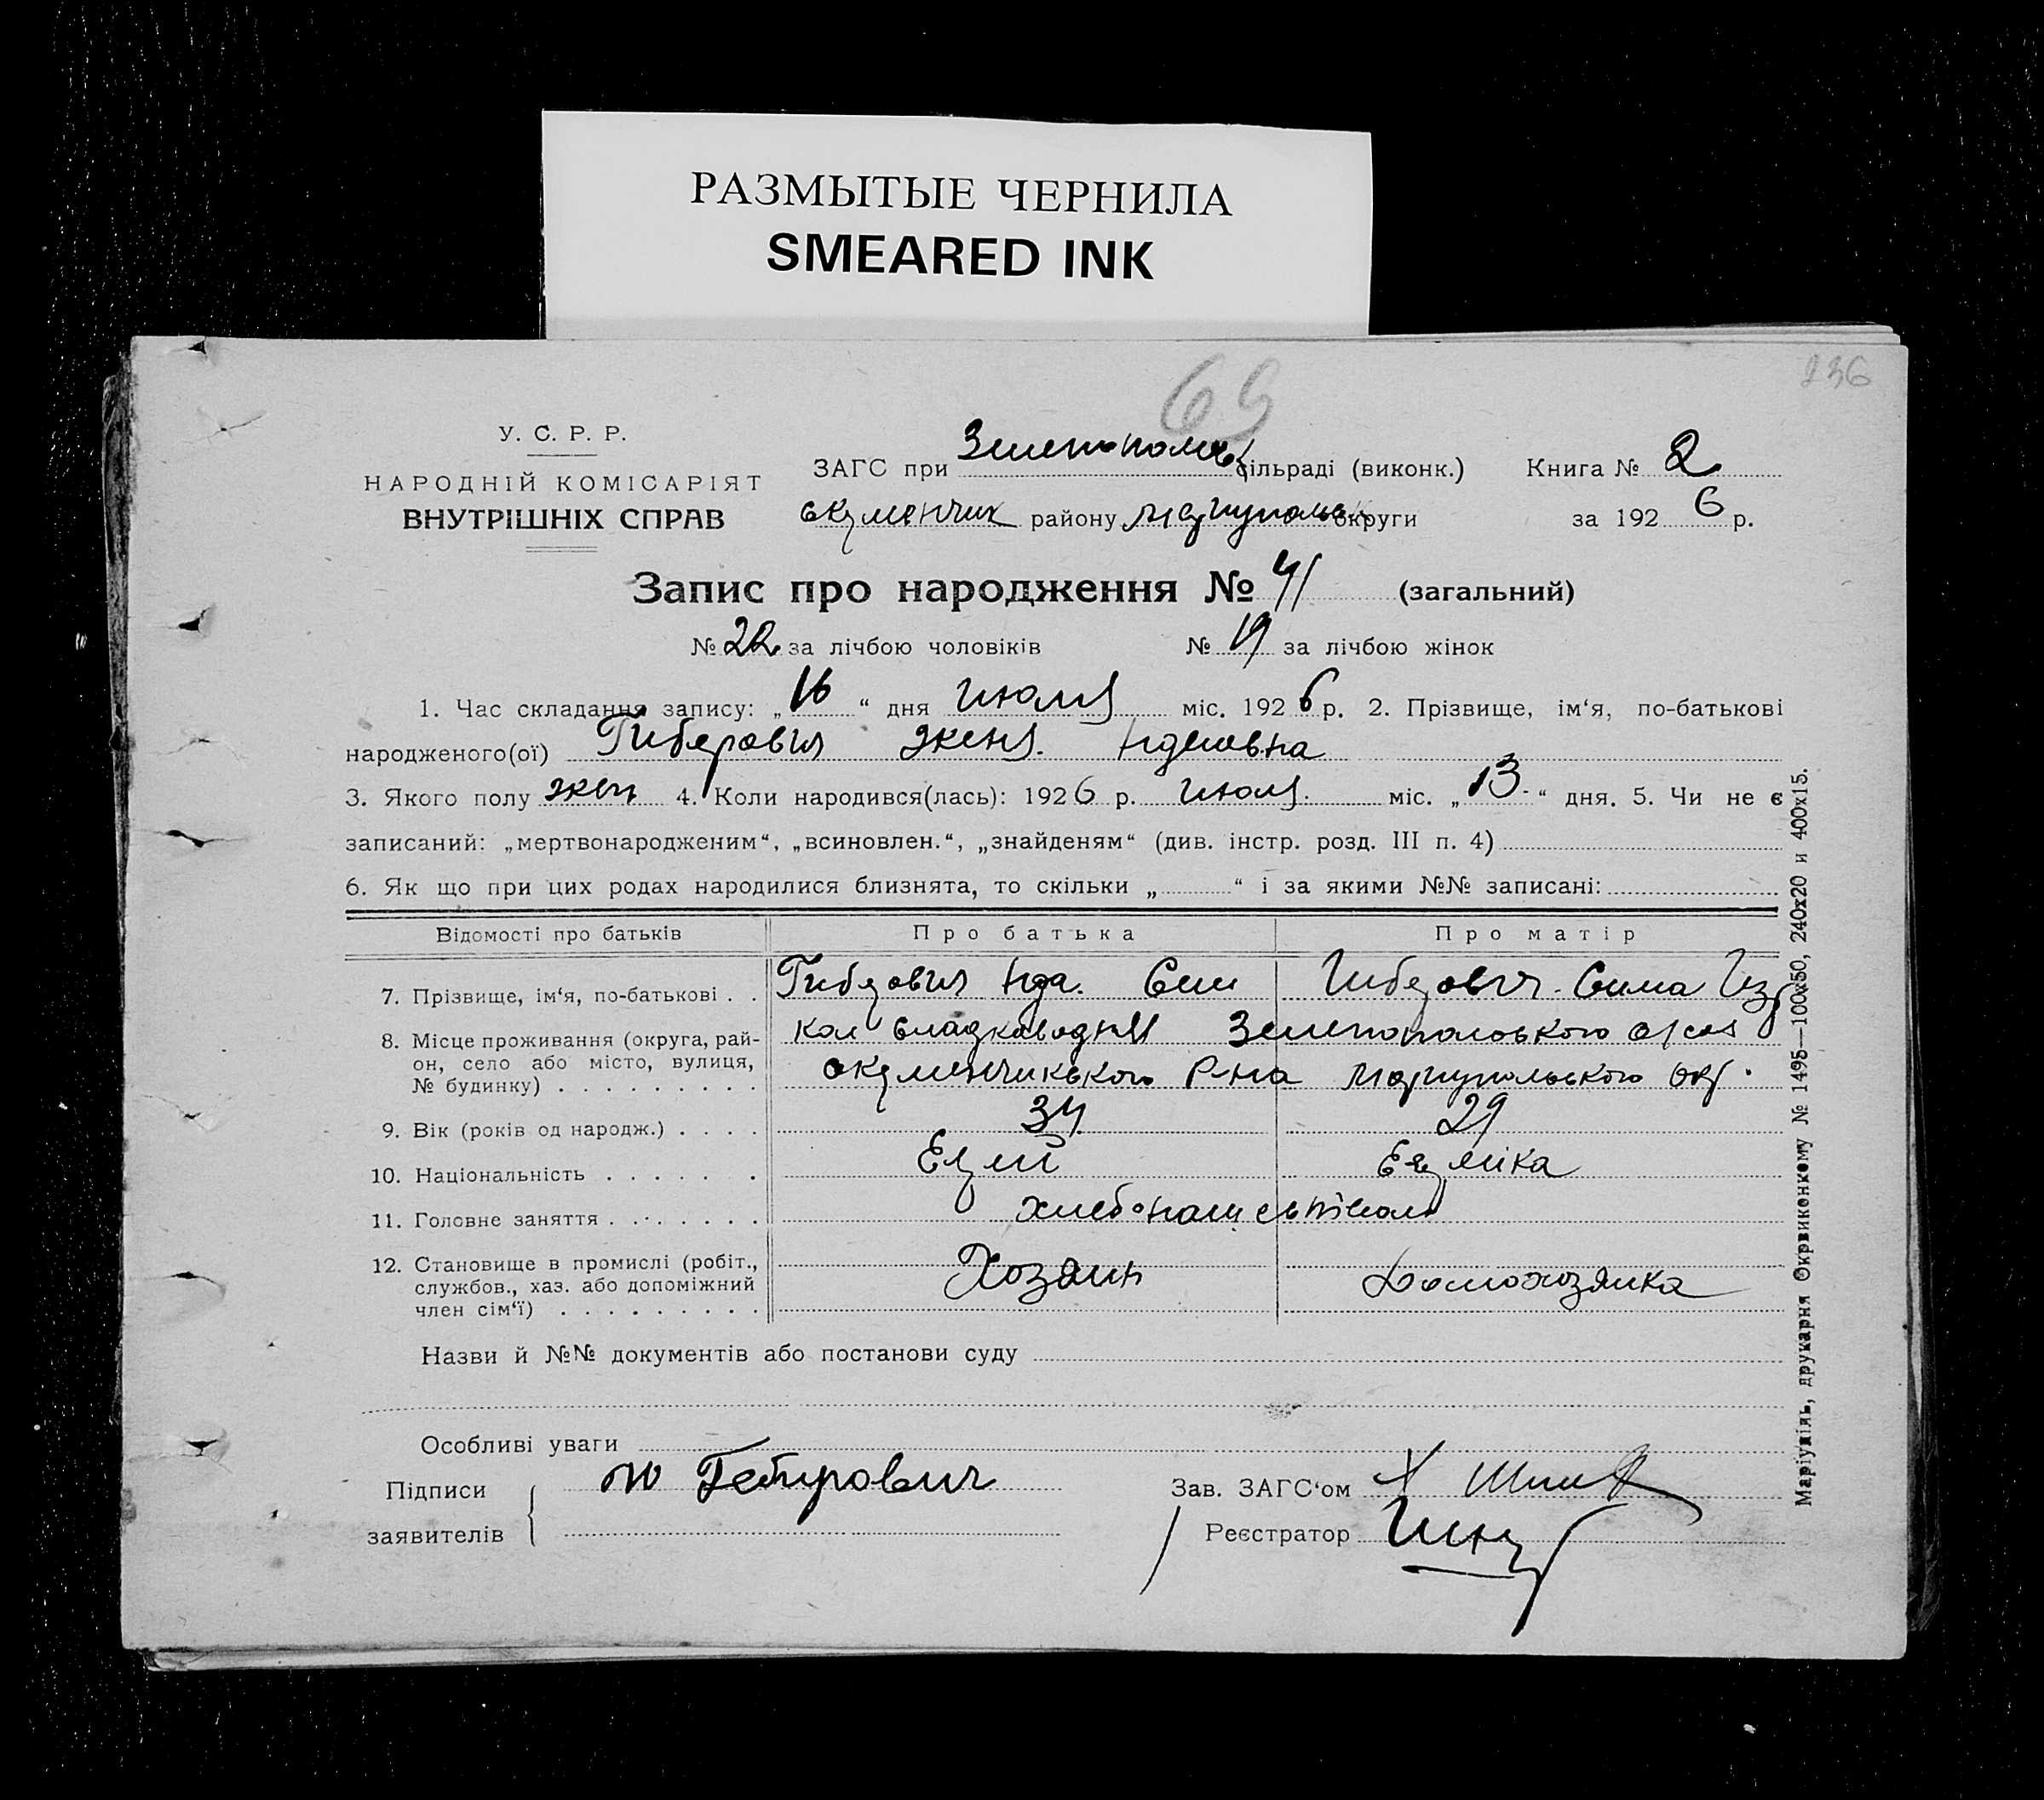 РАЗМЫТЫЕ ЧЕРНИЛА
SMEARED INK
236
69
У. С. Р. Р.
НАРОДНІЙ КОМІСАРІЯТ
ВНУТРІШНІХ СПРАВ
ЗАГС при Зеленопольс сільраді (виконк.) Книга № 2
району Мариуполь округи за 1926 р.
Запис про народження № 41 (загальний)
№ 22 за лічбою чоловіків № 19 за лічбою жінок
1. Час складання запису: „16“ дня Июля міс. 1926 р. 2. Прізвище, ім‘я, по-батькові
народженого(ої)
3. Якого полу жен 4. Коли народився(лась): 1926 р. Июля міс. „13“ дня. 5. Чи не є
записаний: „мертвонародженим“, „всиновлен.“, „знайденям“ (див. інстр. розд. III п. 4)
6. Як що при цих родах народилися близнята, то скільки „ “ і за якими №№ записані:
Відомості про батьків Про батька Про матір
7. Прізвище, ім‘я, по-батькові . . Сима Изр
8. Місце проживання (округа, рай-
он, село або місто, вулиця,
№ будинку) . . . . . . . . .
кол Сладководная Зеленопольського
Р-на Мариупольського окр.
9. Вік (років од народж.) . . . . 34 29
10. Національність . . . . . . Еврей Еврейка
11. Головне заняття . . . . . . . хлебопашество
12. Становище в промислі (робіт.,
службов., хаз. або допоміжний
член сім‘ї) . . . . . . . . .
Хозяин Домохозяйка
Назви й №№ документів або постанови суду
Особливі уваги
Підписи
заявителів
Зав. ЗАГС‘ом
Реєстратор
Маріупіль, друкарня Окрвиконкому № 1495—100х50, 240х20 и 400х15.